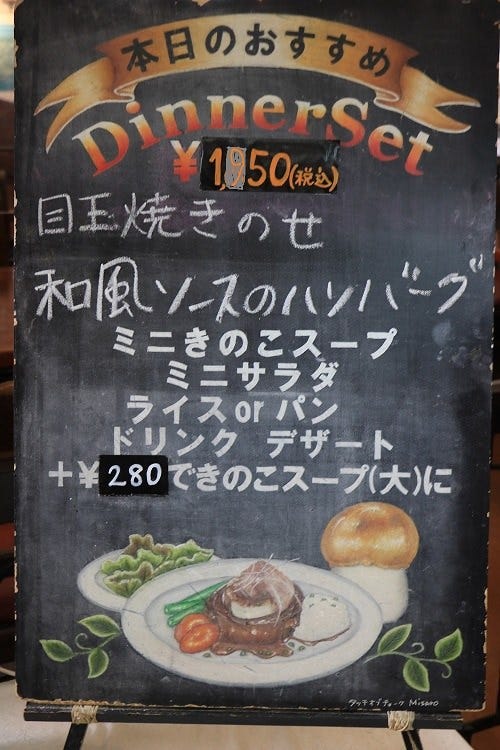 本日のおすすめ
DinnerSet
¥1,950(税込)
目玉焼きのせ
和風ソースのハンバーグ
ミニきのこスープ
ミニサラダ
ライスorパン
ドリンク デザート
+¥280できのこスープ(大)に
タッチオブチョーク MISATO